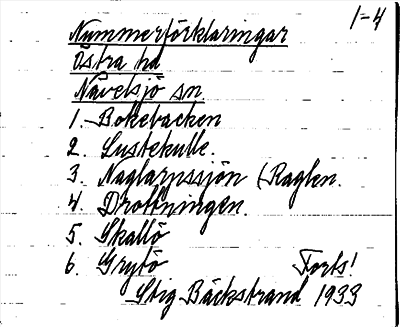 1-4
Nummerförklaringar
Östra hd
Nävelsjö sn
1. Bokebacken
2. Lustekulle.
3. Naglarpssjön (Raglen.
4. Drottningen.
5. Skallö
6. Grytö Forts!
Stig Bäckstrand 1933